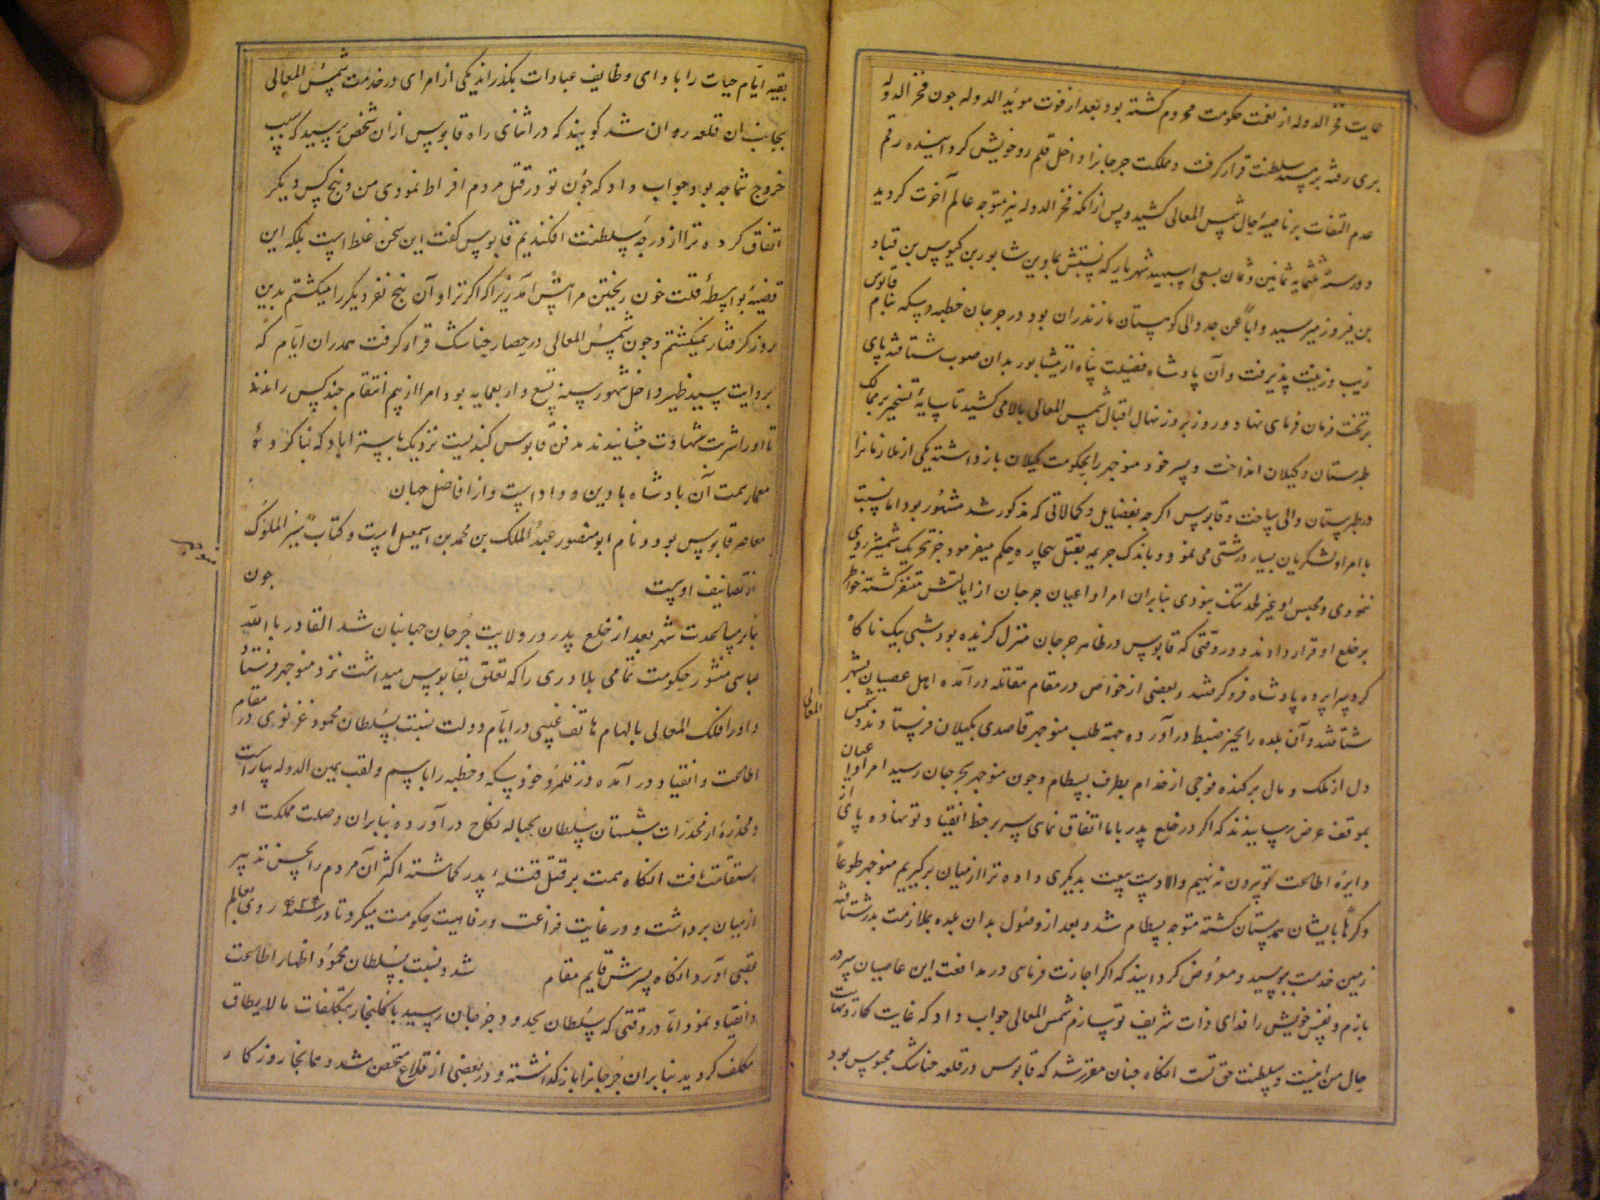 حمایت فخر الدوله از نعمت حکومت محروم کشته بود بعد از فوت موید الدوله چون فخر الدوله
بری رفته بر مسند سلطنت قرار کرفت و مملکت جرجانرا داخل قلم رو خویش کردانیده رقم
عدم التفات بر ناصیهٔ حال شمس المعالی کشید و پس از انکه فخر الدوله نیز متوجه عالم آخرت کردید
و در سنهٔ ثمان و ثمانین و ثلثمایه بسعی اسپهبد شهریار که نسبتش بماوین شاپور بن کیوس بن قباد
بن فیروز میرسید و اباً عن جد والی کوهستان مازندران بود در جرجان خطبه و سکه بنام قابوس
زیب و زینت پذیرفت و آن پادشاه فضیلت پناه از نیشابور بدان صوب شتافته پای
بر تخت فرمان فرمای نهاد و روز بروز نهال اقبال شمس المعالی بالا می کشید تا سایهٔ تسخیر بر ممالک
طبرستان و کیلان انداخت و پسر خود منوچهر را بحکومت کیلان باز داشته یکی از ملازمانرا
در طبرستان والی ساخت و قابوس اکرچه بفضایل و کمالاتی که مذکور شد مشهور بود اما نسبت
با امرا و لشکریان بسیار درشتی می نمود و باندک جریمه بقتل بیچاره حکم میفرمود جز تحریک شمشیر روی
ننمودی و محبس او غیر لحد تنک نبودی بنابران امرا و اعیان جرجان از ایالتش متنفر کشته خواطر
بر خلع او قرار دادند و در وقتی که قابوس در ظاهر جرجان منزل کزیده بود شبی بیک ناکاه
کرد سراپرده پادشاه فرو کرفتند و بعضی از خواص در مقام مقاتله در آمده اهل عصیان بشهر
شتافتند و آن بلده را بحیز ضبط در آورده جهة طلب منوچهر قاصدی بکیلان فرستادند و شمس
المعالی
دل از ملک و مال برکنده فوجی از خدام بطرف بسطام و چون منوچهر بجرجان رسید امرا و اعیان
بموقف عرض رسانیدند که اکر در خلع پدر با ما اتفاق نمای سر بر خط انقیاد تو نهاده پای از
دایرهٔ اطاعت تو بیرون ننهیم و الا دست بیعت بدیکری داده ترا از میان برکیریم منوچهر طوعاً
و کرهاً با ایشان همدستان کشته متوجه بسطام شد و بعد از وصول بدان بلده بملازمت پدر شتافته
زمین خدمت بوسید و معروض کردانید که اکر اجازت فرمای در مدافعت این عاصیان سر در
بازم و نفس خویش را فدای ذات شریف تو سازم شمس المعالی جواب داد که غایت کار و نهایت
حال من اینست و سلطنت حق تست انکاه چنان مقرر شد که قابوس در قلعه جناشک محبوس بود
بقیه ایّام حیات را با دای وظایف عبادات بکذراند یکی از امرای در خدمت شمس المعالی
بجانب ان قلعه روان شد کویند که در اثنای راه قابوس ازان شخص پرسید که سبب
خروج شما چه بود جواب داد که چون تو در قتل مردم افراط نمودی من و پنج کس دیکر
اتفاق کرده ترا از درجهٔ سلطنت افکندیم قابوس کفت این سخن غلط است بلکه این
قضیه بواسطهٔ قلت خون ریختن مرا پیش آمد زیرا که اکر ترا و آن پنج نفر دیکر را میکشتم بدین
روز کرفتار نمیکشتم و چون شمس المعالی در حصار جناشک قرار کرفت همدران ایّام که
بروایت سید ظهیر داخل شهور سنه تسع و اربعمایه بود امرا از بیم انتقام چند کس راندند
تا او را شربت شهادت چشانیدند مدفن قابوس کنبدیست نزدیک باستراباد که بنا کرده
معمار همت آن پادشاه با دین و داد است و از افاضل جهان
معاصر قابوس بود و نام ابو منصور عبد الملک بن محمد بن اسمعیل است و کتاب سیر الملوک
از تصانیف اوست چون
منوچهر
بنابر مساعدت شهر بعد از خلع پدر در ولایت جرجان جهانبان شد القادر بالله
عباسی منشور حکومت تمامی بلادی را که تعلق بقابوس میداشت نزد منوچهر فرستاد
و او را فلک المعالی بالهام هاتف غیبی در ایّام دولت نسبت بسلطان محمود غزنوی در مقام
اطاعت و انقیاد در آمده در قلمرو خود سکه و خطبه را باسم و لقب یمین الدوله بیاراست
و مخدرهٔ از مخدرات شبستان سلطان بحباله نکاح در آورده بنابران وصلت مملکت او
استقامت یافت انکاه همت بر قتل قتلهٔ پدر کماشته اکثر آن مردم را بحسن تدبیر
از میان برداشت و در غایت فراغت و رفاهیت حکومت میکرد تا در ۴۲۴ روی بعالم
عقبی آورد انکاه پسرش قایم مقام شد و نسبت بسلطان محمود اظهار اطاعت
و انقیاد نمود امّا در وقتی که سلطان بحدود جرجان رسید باکالنجار بتکلفات مالایطاق
مکلف کردید بنابران جرجانرا باز کذاشته و در بعضی از قلاع متحصن شد و همانجا روزکار